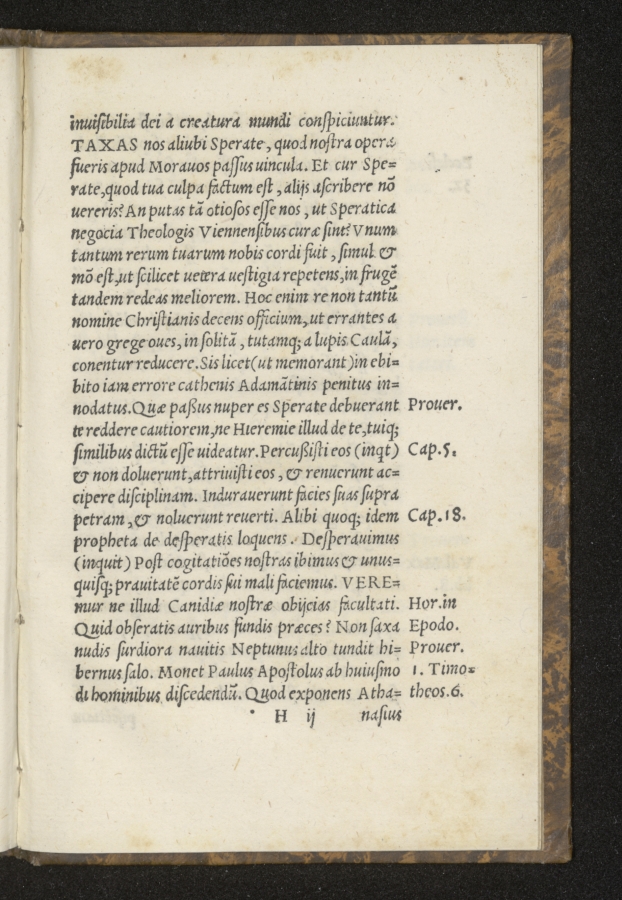 inuisibilia dei a creatura mundi conspiciuntur.
TAXAS nos aliubi Sperate, quod nostra opera
fueris apud Morauos passus uincula. Et cur Spe=
rate, quod tua culpa factum est, alijs ascribere nō
uereris? An putas tā otiosos esse nos, ut Speratica
negocia Theologis Viennensibus curæ sint? Vnum
tantum rerum tuarum nobis cordi fuit, simul &
mō est, ut scilicet uetera uestigia repetens, in frugē
tandem redeas meliorem. Hoc enim re non tantū
nomine Christianis decens officium, ut errantes a
uero grege oues, in solitā, tutamq; a lupis Caulā,
conentur reducere. Sis licet (ut memorant) in ebi=
bito iam errore cathenis Adamātinis penitus in=
nodatus. Quæ passus nuper es Sperate debuerant Prouer.
te reddere cautiorem, ne Hieremie illud de te, tuiq;
similibus dictū esse uideatur. Percussisti eos (inqt) Cap.5.
& non doluerunt, attriuisti eos, & renuerunt ac=
cipere disciplinam. Indurauerunt facies suas supra
petram, & noluerunt reuerti. Alibi quoq; idem Cap.18.
propheta de desperatis loquens. Desperauimus
(inquit) Post cogitatiões nostras ibimus & unus=
quisq; prauitatē cordis sui mali faciemus. VERE=
mur ne illud Canidiæ nostræ obijcias facultati. Hor.in
Quid obseratis auribus fundis præces? Non saxa Epodo.
nudis surdiora nauitis Neptunus alto tundit hi= Prouer.
bernus salo. Monet Paulus Apostolus ab huiusmo 1. Timo=
di hominibus discedendū. Quod exponens Atha= theos.6.
H ij nasius